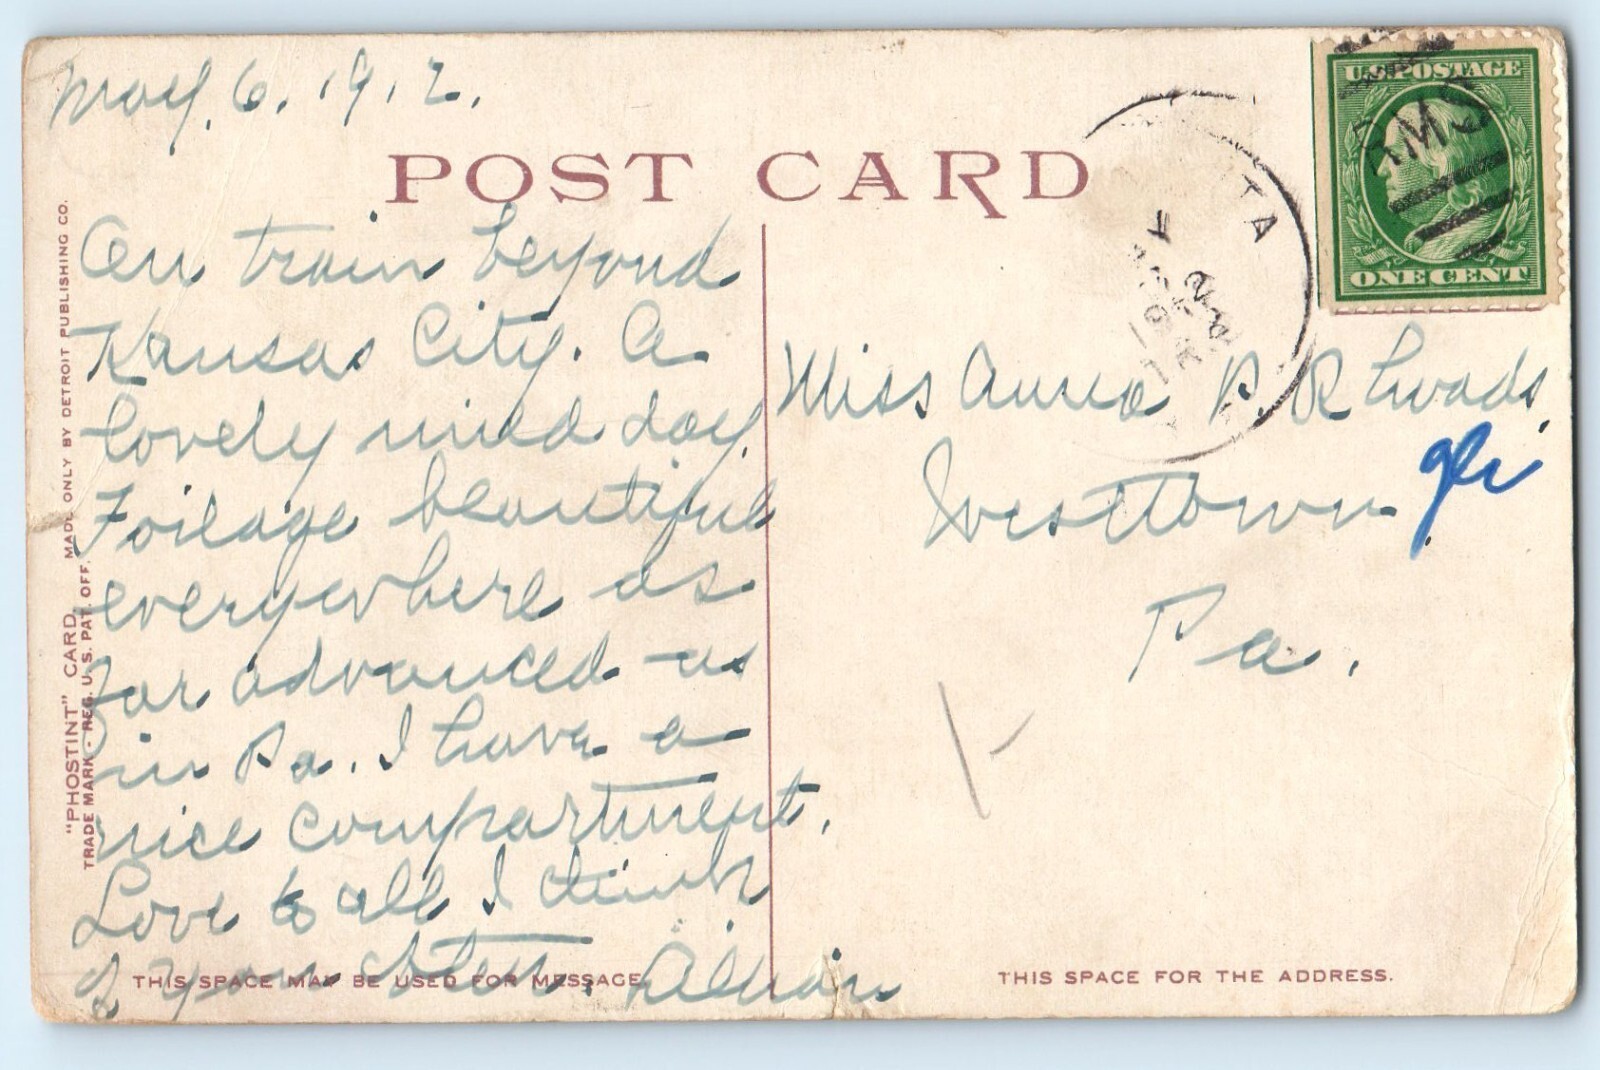 May. 6. 1912.
POST CARD
On train beyond
Kansas City. A
lovely mild day.
Foilage beautiful
everywhere as
far advanced as
in Pa. I have a
nice compartment.
Love to all I think
of you often. Lillian
"PHOSTINT" CARD MADE ONLY BY DETROIT PUBLISHING CO.
TRADE MARK - REG. U.S. PAT. OFF.
THIS SPACE MAY BE USED FOR MESSAGE
U.S. POSTAGE
ONE CENT
RMS
TA
Miss Anna P. Rhoads.
Westtown
Pa.
THIS SPACE FOR THE ADDRESS.